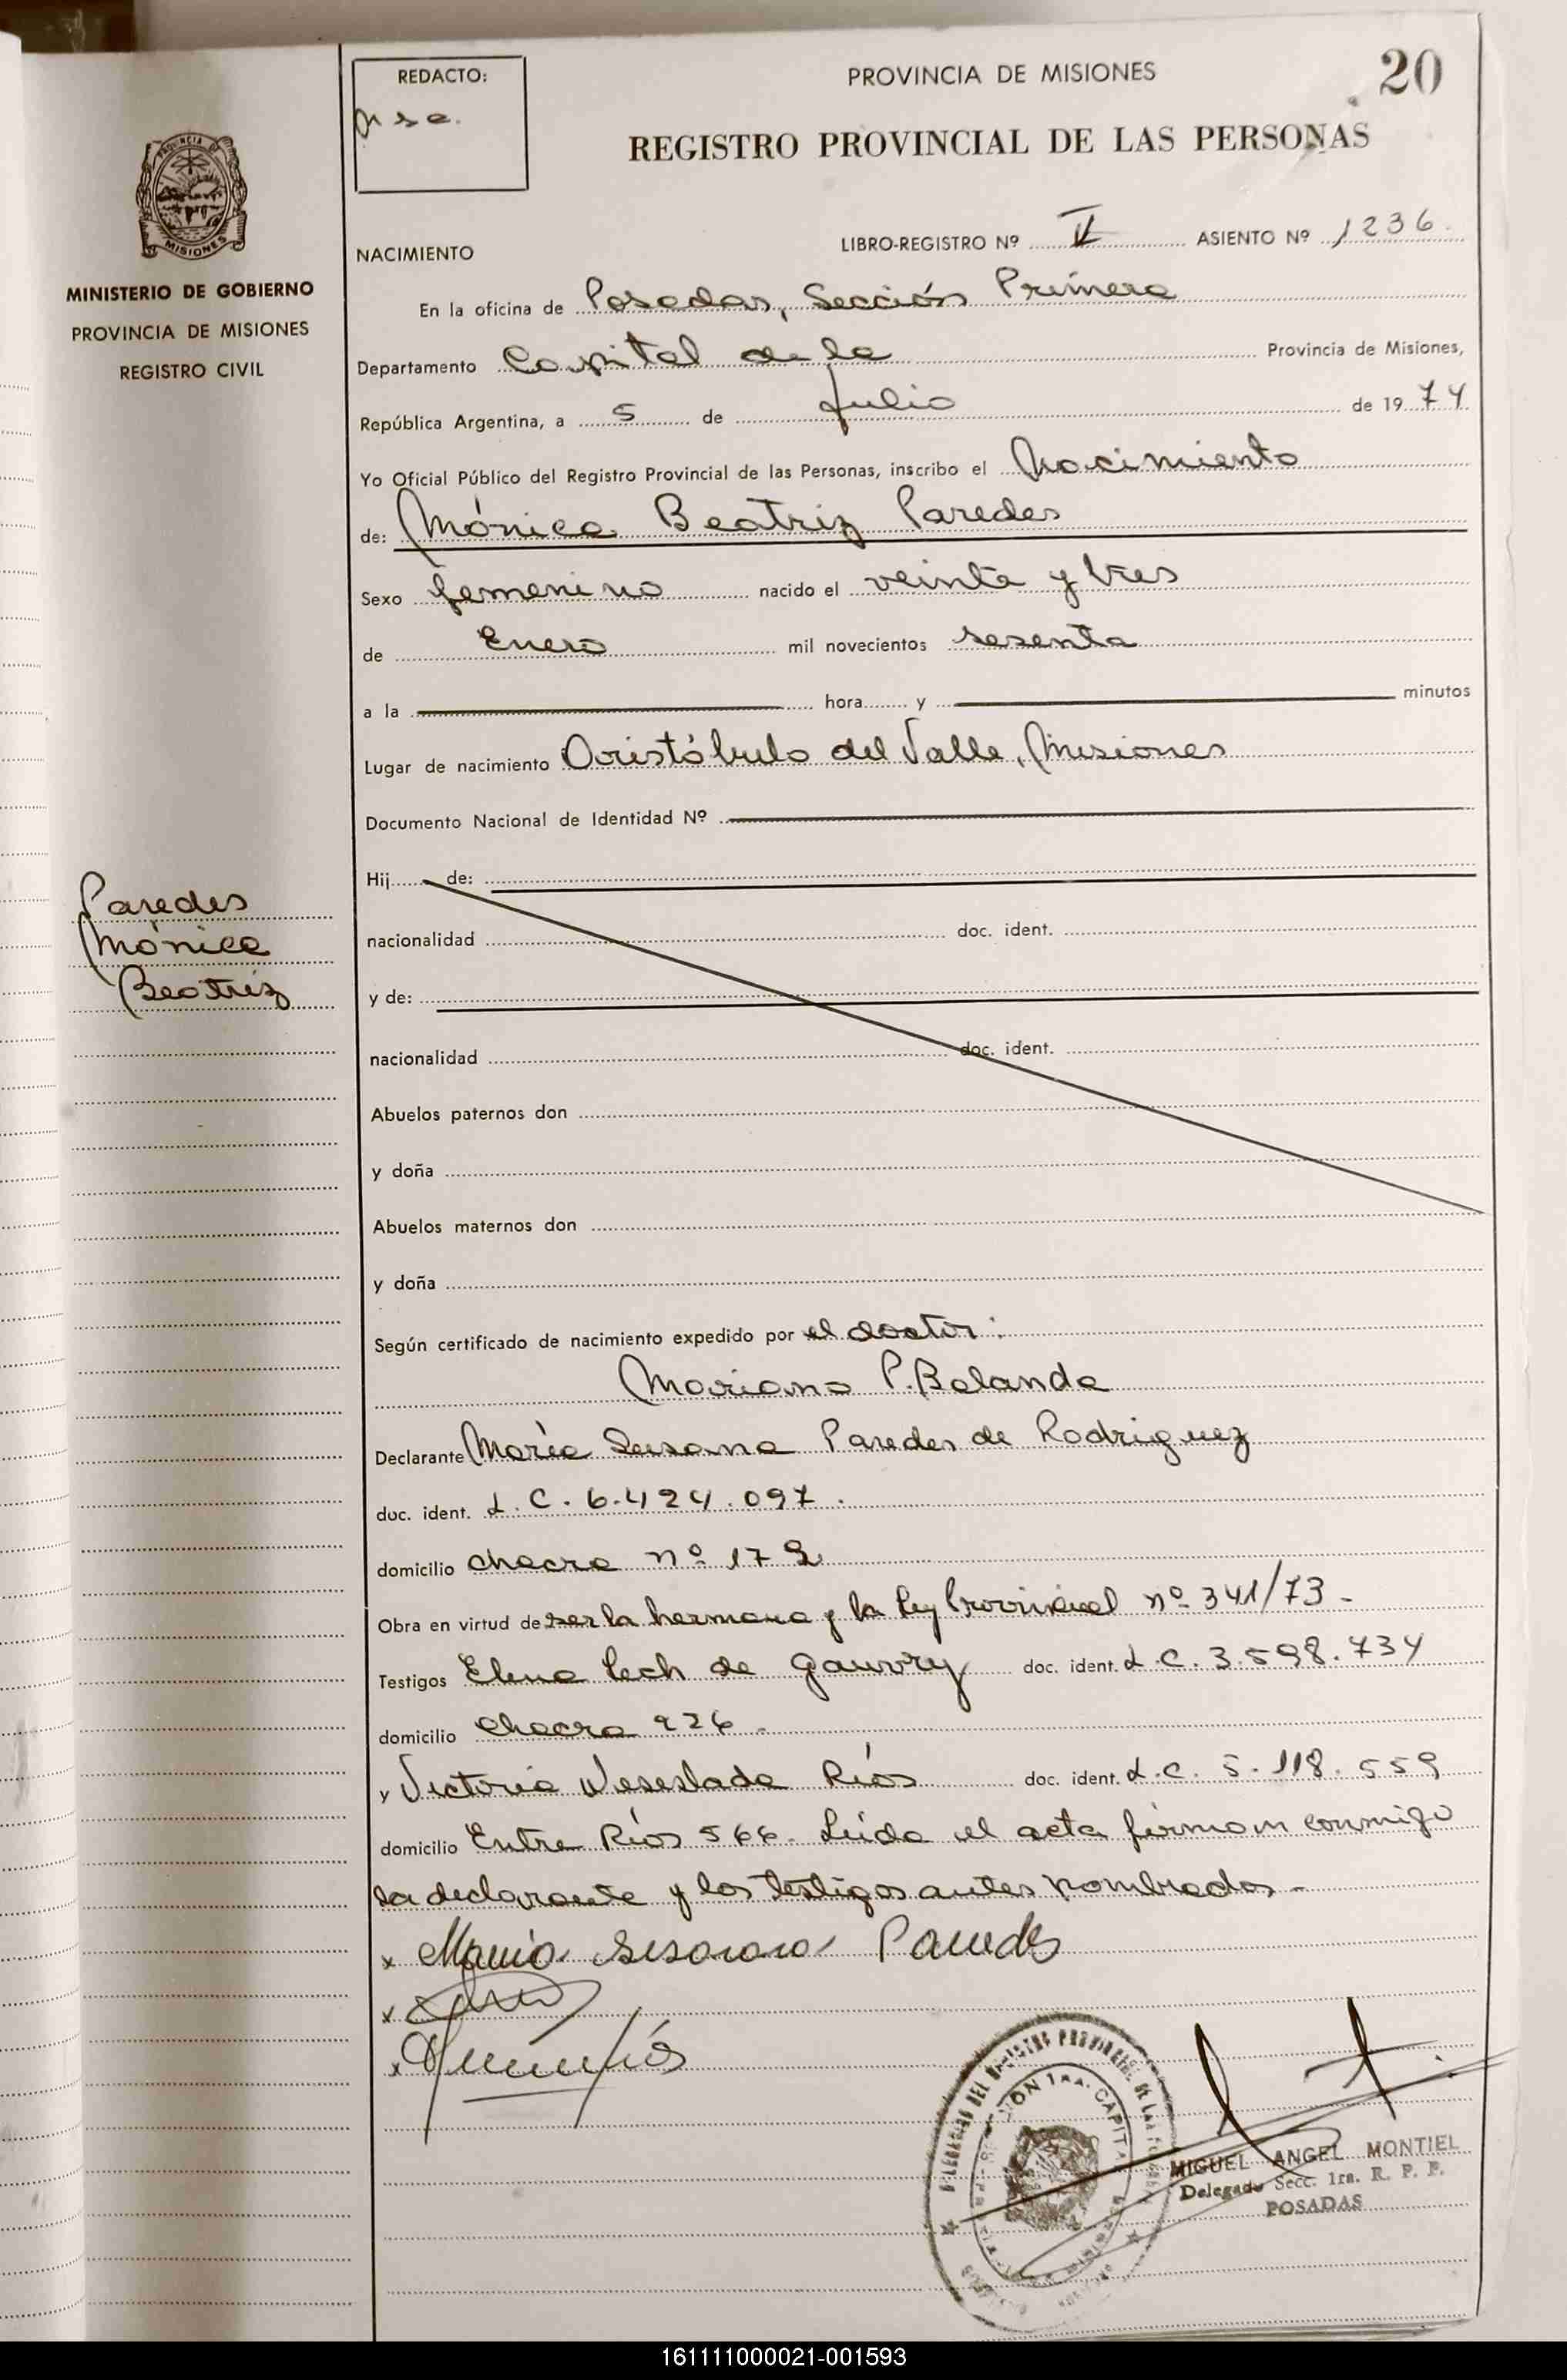 20
REDACTO:
PROVINCIA DE MISIONES
REGISTRO PROVINCIAL DE LAS PERSONAS
PROVINCIA DE
MISIONES
MINISTERIO DE GOBIERNO
PROVINCIA DE MISIONES
REGISTRO CIVIL
NACIMIENTO
LIBRO-REGISTRO Nº ASIENTO Nº 1236.
En la oficina de Posadas, Sección Primera
Departamento Capital de la Provincia de Misiones,
República Argentina, a 5 de Julio de 1974
Yo Oficial Público del Registro Provincial de las Personas, inscribo el Nacimiento
de: Mónica Beatriz Paredes
Sexo femenino nacido el veinte y tres
de Enero mil novecientos sesenta
a la hora y minutos
Lugar de nacimiento Aristóbulo del Valle, Misiones
Documento Nacional de Identidad Nº
Hij de:
Paredes
Mónica
Beatriz
nacionalidad doc. ident.
y de:
nacionalidad doc. ident.
Abuelos paternos don
y doña
Abuelos maternos don
y doña
Según certificado de nacimiento expedido por el doctor:
Mariano P. Balanda
Declarante María Susana Paredes de Rodriguez
doc. ident. L.C. 6.424.097.
domicilio chacra nº 179
Obra en virtud de ser la hermana y la Ley Provincial nº 341/73-
Testigos Elena Lech de doc. ident. L.C. 3.598.734
domicilio Chacra 226.
y Victoria Weseslada Ríos doc. ident. L.C. 5.118.559
domicilio Entre Ríos 566. Leída el acta firman conmigo
la declarante y los testigos antes nombrados-
x María Susana Paredes
x
x
MIGUEL ANGEL MONTIEL
Delegado Secc. 1ra. R. P. P.
POSADAS
161111000021-001593